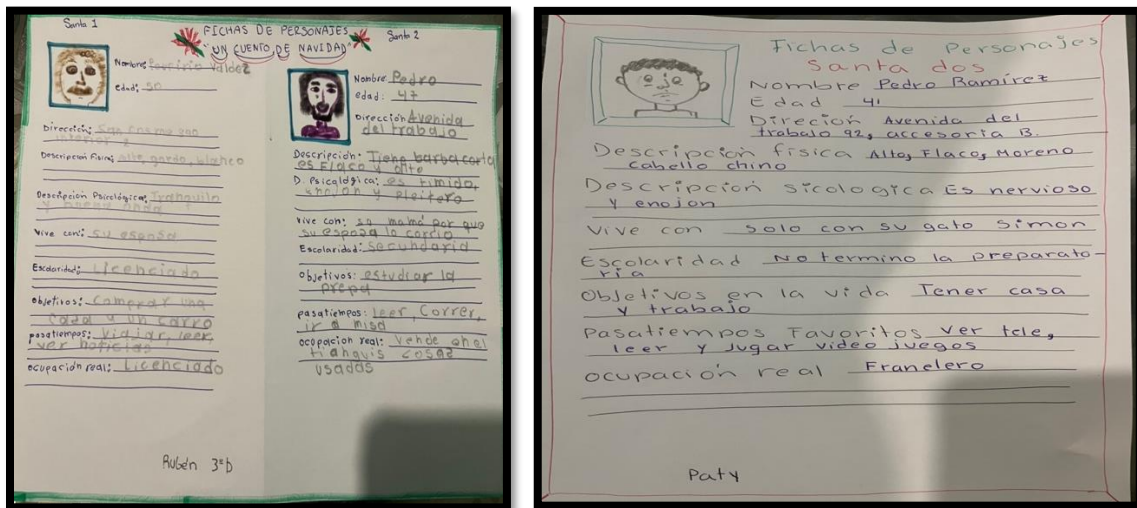 Santa 1
FICHAS DE PERSONAJES
"UN CUENTO DE NAVIDAD"
Santa 2
Nombre: Valdez
edad: 50
Dirección: San Cosme
interior 2
Descripción Física: alto, gordo, blanco
Descripción Psicológica: Tranquilo
y buena onda
Vive con: su esposa
Escolaridad: Licenciado
objetivos: Comprar una
casa y un carro
pasatiempos: viajar, leer,
ver noticias
ocupación real: Licenciado
Nombre: Pedro
edad: 47
Dirección Avenida
del trabajo
Descripción: Tiene barba corta
es Flaco y alto
D. Psicológica: es timido,
enojon y pleitero
vive con: su mamá por que
su esposa lo corrio
Escolaridad: Secundaria
objetivos: estudiar la
prepa
pasatiempos: leer, Correr,
ir a misa
ocupacion real: Vende en el
tianguis cosas
usadas
Rubén 3°b
Fichas de Personajes
Santa dos
Nombre Pedro Ramirez
Edad 41
Direcion Avenida del
trabalo 92, accesoria B.
Descripcion fisica Alto, Flaco, Moreno
cabello chino
Descripcion sicologica Es nervioso
y enojon
Vive con solo con su gato Simon
Escolaridad No termino la preparato-
ria
Objetivos en la vida Tener casa
y trabajo
Pasatiempos Favoritos ver tele,
leer y jugar video juegos
ocupación real Franelero
Paty